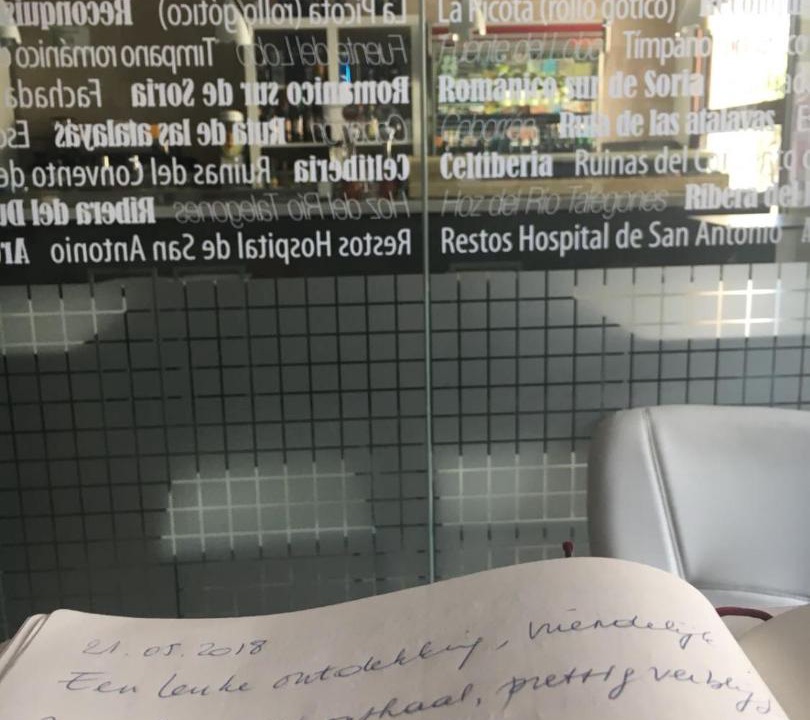 La Picota (rollo gótico)
Fuente del Lobo Tímpano
Románico sur de Soria
Ruta de las atalayas
Celtiberia Ruinas del
Hoz del Río Talegones Ribera del
Restos Hospital de San Antonio
La Picota (rollo gótico) Reconquis
Fuente del Lobo Tímpano románico
Románico sur de Soria Fachada
Ruta de las atalayas
Celtiberia Ruinas del Convento de
Hoz del Río Talegones Ribera del Du
Restos Hospital de San Antonio Ar
21.05.2018
Een leuke ontdekking, vriendelijk
prettig verblijf